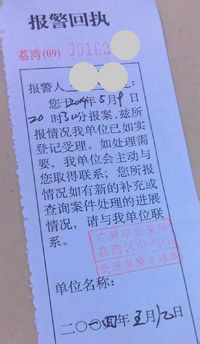 报警回执
荔湾(09)
报警人
您于2014年5月9日
20时30分报案,兹所
报情况我单位已如实
登记受理。如处理需
要,我单位会主动与
您取得联系;您所报
情况如有新的补充或
查询案件处理的进展
情况,请与我单位联
系。
广州市公安局
荔湾区分局
单位名称:
二〇一四年五月 日